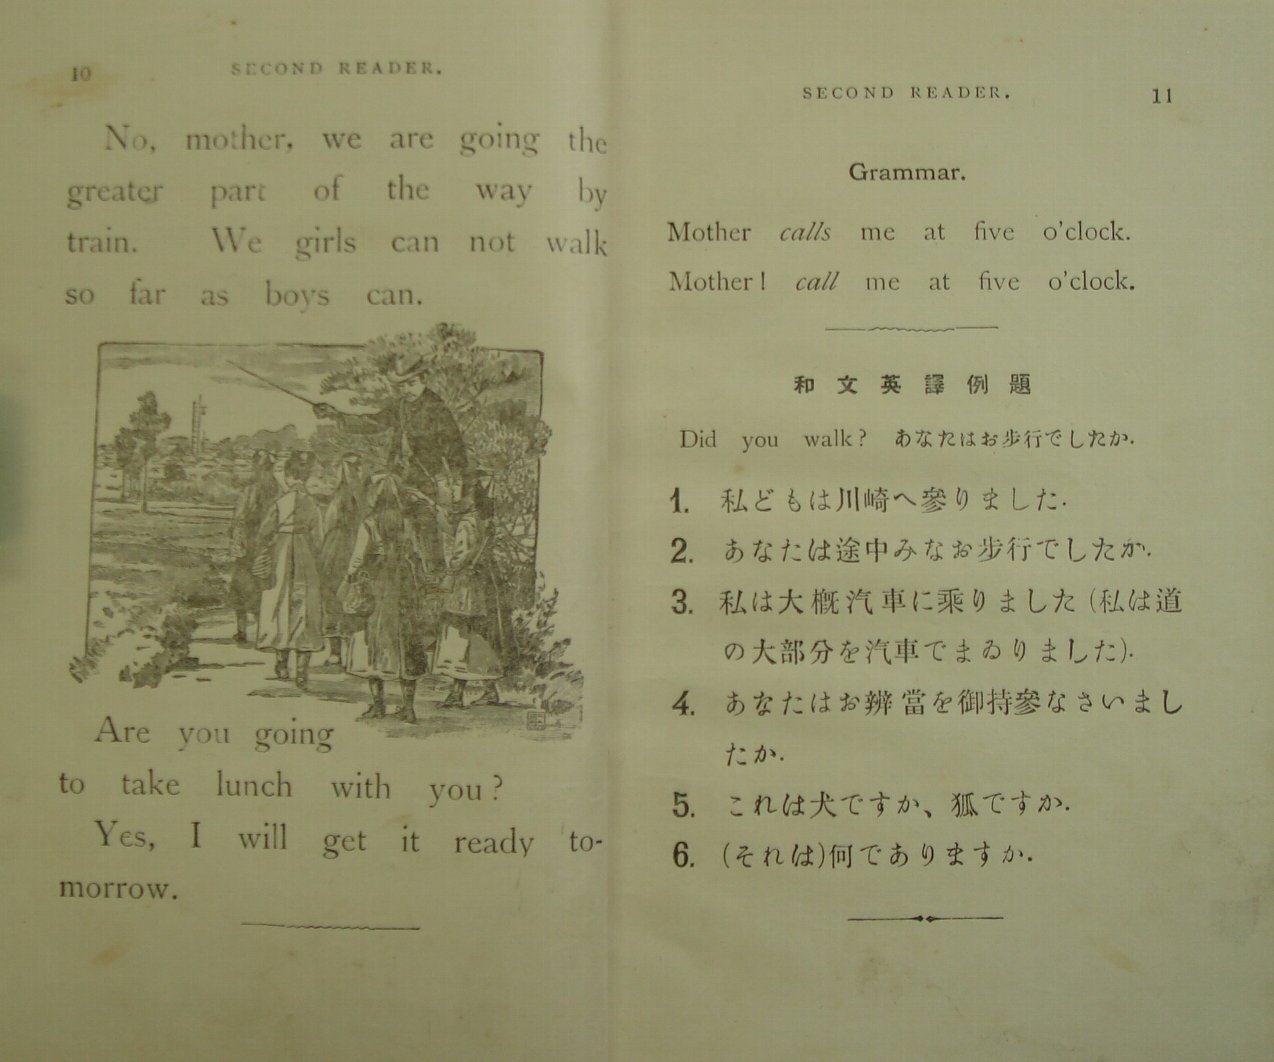 10
SECOND READER.
No, mother, we are going the
greater part of the way by
train. We girls can not walk
so far as boys can.
Are you going
to take lunch with you?
Yes, I will get it ready to-
morrow.
SECOND READER.
11
Grammar.
Mother calls me at five o'clock.
Mother! call me at five o'clock.
和文英譯例題
Did you walk? あなたはお歩行でしたか.
1. 私どもは川崎へ參りました.
2. あなたは途中みなお歩行でしたか.
3. 私は大概汽車に乘りました (私は道
の大部分を汽車でまゐりました).
4. あなたはお辨當を御持參なさいまし
たか.
5. これは犬ですか、狐ですか.
6. (それは)何でありますか.